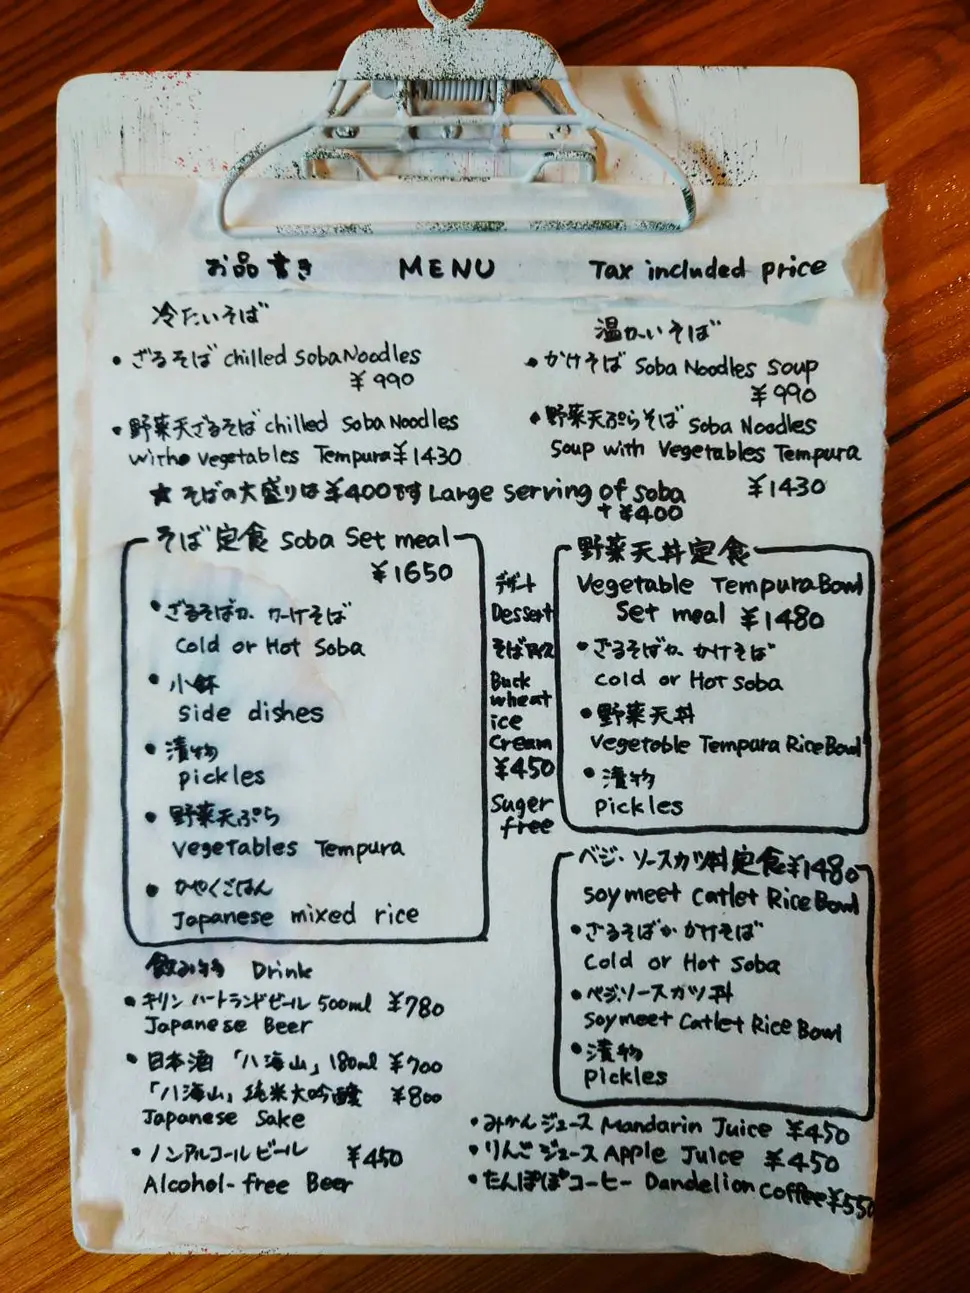 お品書き MENU Tax included price
冷たいそば
• ざるそば chilled Soba Noodles
¥990
• 野菜天ざるそば chilled Soba Noodles
witho vegetables Tempura ¥1430
温かいそば
• かけそば Soba Noodles Soup
¥990
• 野菜天ぷらそば Soba Noodles
Soup with Vegetables Tempura
¥1430
★ そばの大盛りは¥400です Large Serving of soba
+¥400
そば定食 Soba Set meal
¥1650
• ざるそばか かけそば
Cold or Hot Soba
• 小鉢
Side dishes
• 漬物
Pickles
• 野菜天ぷら
Vegetables Tempura
• かやくごはん
Japanese mixed rice
デザート
Dessert
そばアイス
Buck
wheat
ice
Cream
¥450
Suger
free
野菜天丼定食
Vegetable Tempura Bowl
Set meal ¥1480
• ざるそばか かけそば
Cold or Hot Soba
• 野菜天丼
Vegetable Tempura Rice Bowl
• 漬物
Pickles
ベジ・ソースカツ丼定食¥1480
Soy meet Catlet Rice Bowl
• ざるそばか かけそば
Cold or Hot Soba
• ベジ・ソースカツ丼
Soy meet Catlet Rice Bowl
• 漬物
Pickles
飲み物 Drink
• キリン ハートランドビール 500ml ¥780
Japanese Beer
• 日本酒 「八海山」 180ml ¥700
「八海山」純米大吟醸 ¥800
Japanese Sake
• ノンアルコールビール ¥450
Alcohol-free Beer
• みかんジュース Mandarin Juice ¥450
• りんごジュース Apple Juice ¥450
• たんぽぽコーヒー Dandelion Coffee ¥550